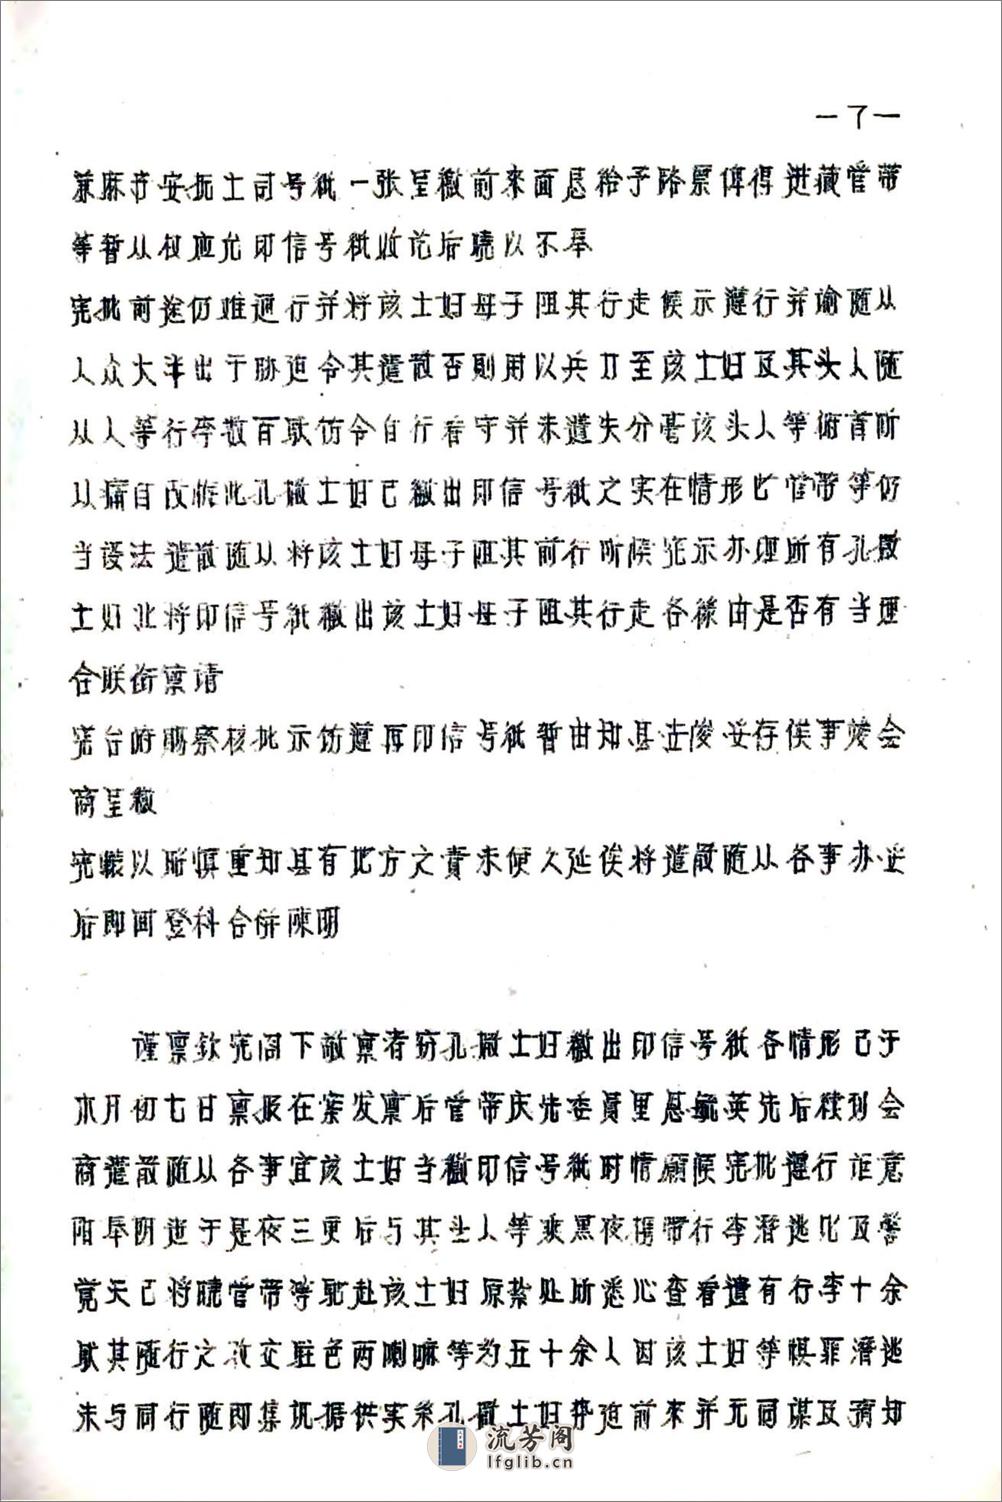 —7—
麻书安抚土司号纸一张呈缴前来面恳给予路票俾得进藏管带
等暂从权应允印信号纸收讫后晓以不奉
宪批前途仍难通行并将该土妇母子阻其行走候示遵行并谕随从
人众大半出于胁迫令其遣散否则用以兵刀至该土妇及其头人随
从人等行李数百驮饬令自行看守并未遗失分毫该头人等俯首听
从痛自改悔此孔撒土妇已缴出印信号纸之实在情形也管带等仍
当设法遣散随从将该土妇母子阻其前行听候宪示办理所有孔撒
土妇业将印信号纸缴出该土妇母子阻其行走各缘由是否有当理
合联衔禀请
宪台俯赐察核批示饬遵再印信号纸暂由知县岳俊妥存俟事竣会
商呈缴
宪辕以昭慎重知县有地方之责未便久延俟将遣散随从各事办妥
后即回登科合併陈明
谨禀钦宪阁下敬禀者窃孔撒土妇缴出印信号纸各情形已于
本月初七日禀报在案发禀后管带庆先委员里恳毓英先后续到会
商遣散随从各事宜该土妇当缴印信号纸时情愿候宪批遵行讵意
阳奉阴违于是夜三更后与其头人等乘黑夜携带行李潜逃比及警
觉天已将晓管带等驰赴该土妇原扎处所悉心查看遗有行李十余
驮其随行之孜交驻色两喇嘛等为五十余人因该土妇等惧罪潜逃
未与同行随即集讯据供实系孔撒土妇势迫前来并无同谋及预知
流芳阁
lfglib.cn